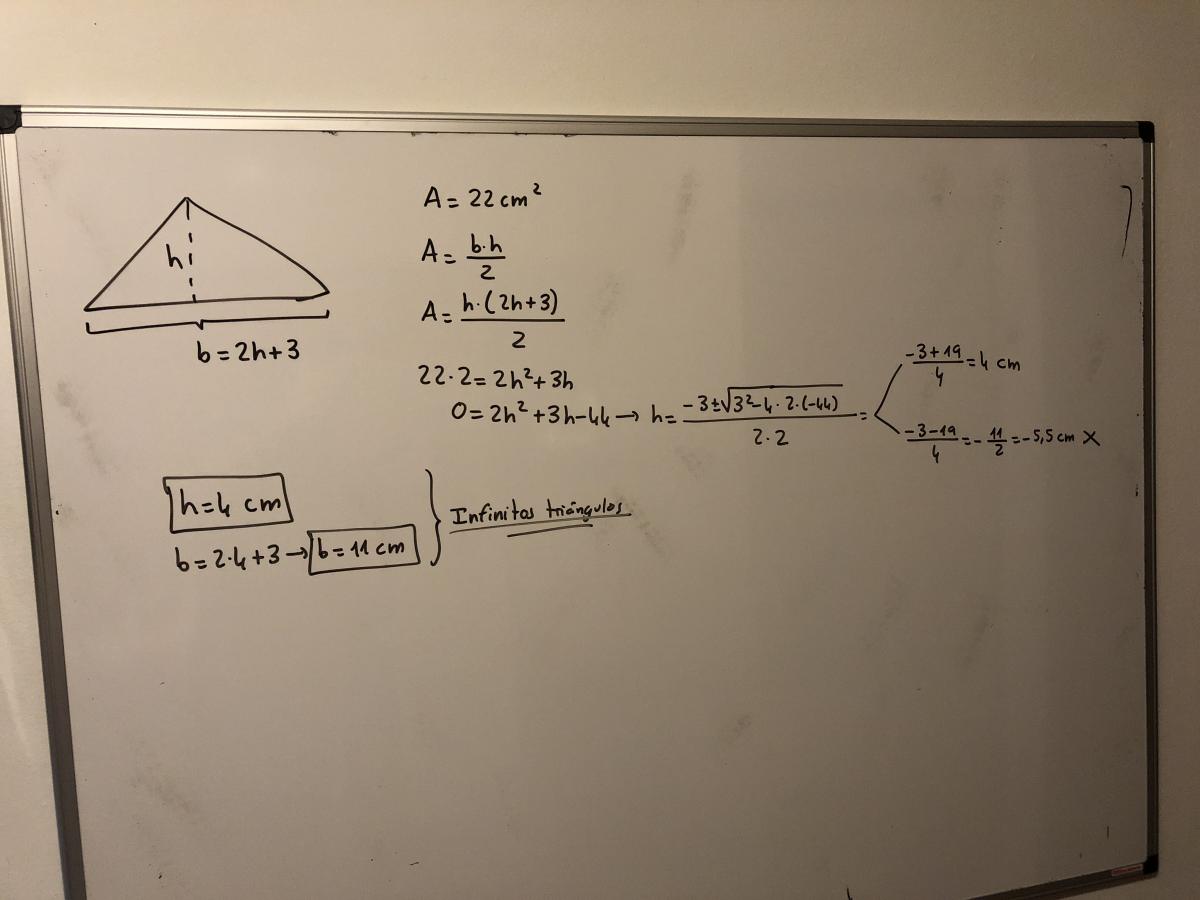 h
b = 2h+3
A = 22 cm²
A = b·h/2
A = h·(2h+3)/2
22·2 = 2h²+3h
0 = 2h²+3h-44 → h = (-3±√(3²-4·2·(-44)))/(2·2) =
(-3+19)/4 = 4 cm
(-3-19)/4 = -11/2 = -5,5 cm X
h = 4 cm
b = 2·4+3 → b = 11 cm
Infinitos triángulos